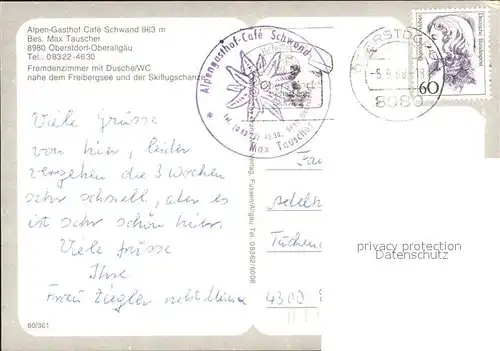 Alpen-Gasthof Café Schwand 963 m
Bes. Max Tauscher
8980 Oberstdorf-Oberallgäu
Tel.: 08322-4630
Fremdenzimmer mit Dusche/WC
nahe dem Freibergsee und der Skiflugschanze
Alpengasthof-Café Schwand
Max Tauscher
8980
Deutsche Bundespost
60
Viele Grüsse
von hier, leider
vergehen die 3 Wochen
sehr schnell, aber es
ist sehr schön hier.
Viele Grüsse
Ihre
Frieda Ziegler
Verlag Füssen/Allgäu Tel. 08362/6008
4300
privacy protection
Datenschutz
60/361